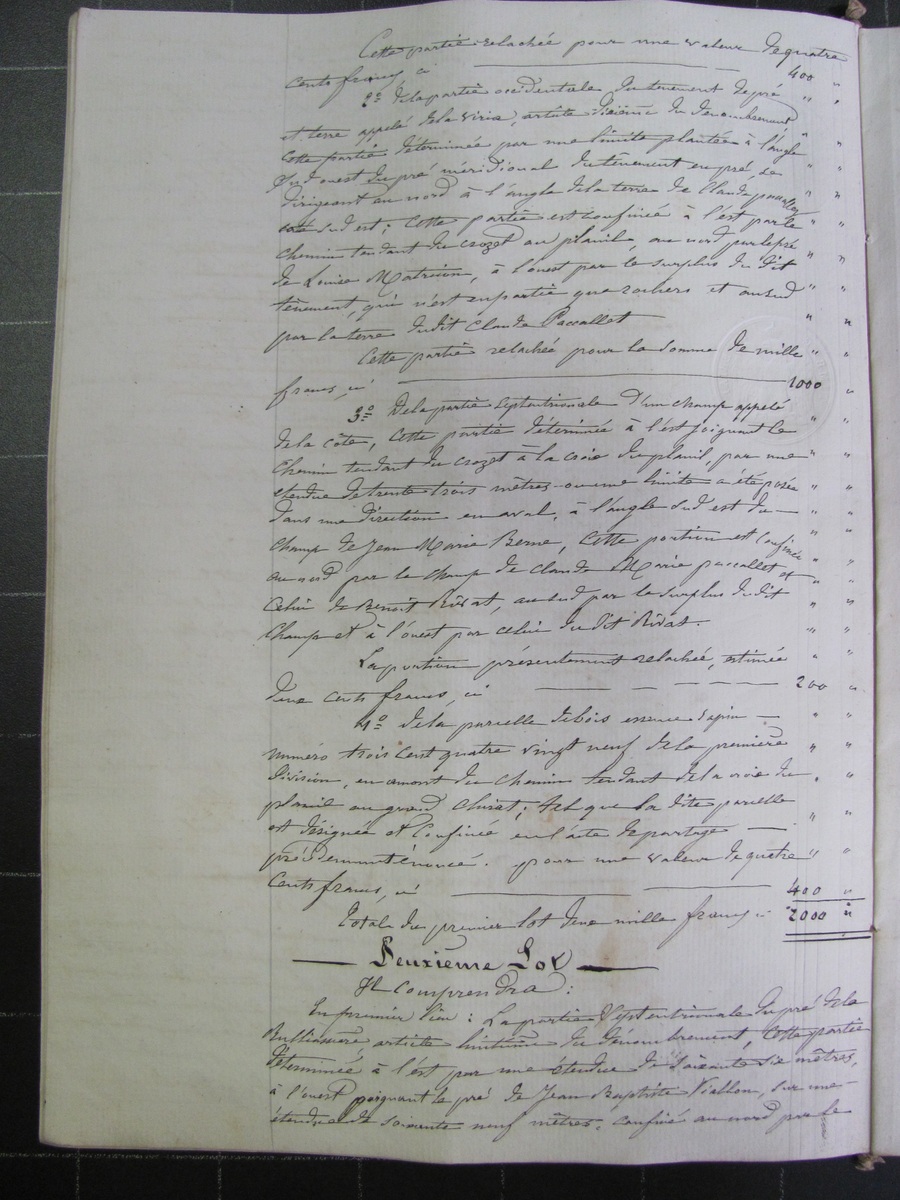 Cette partie relachée pour une valeur de quatre
cents francs ci 400 "
2° de la partie occidentale du tenement de pré
et terre appelé de la Viria, article dixième du denombrement
Cette partie déterminée par une limite plantée à l'angle
Sud ouest du pré méridional du tènement en pré, se
dirigeant au nord à l'angle de la terre de Claude pascallet
coté sud est; Cette partie est confinée à l'est par le
chemin tendant du crozet au planil, au nord par le pré
de Louise Matricon, à l'ouest par le surplus du dit
tènement, qui n'est en partie que rochers et au sud
par la terre dudit Claude Pascallet
Cette partie relachée pour la somme de mille
francs, ci 1000 "
3° De la partie septentrionale d'un champ appelé
de la côte, Cette partie déterminée à l'est joignant le
Chemin tendant du crozet à la croix du planil, par une
étendue de trente trois mètres où une limite a été posée
dans une direction en aval, à l'angle sud est du
champ de Jean Marie Berne, Cette portion est confinée
au nord par le champ de Claude Marie pascallet et
Celui de Benoit Rivat, au sud par le surplus du dit
Champ et à l'ouest par celui du dit Rivat.
La portion présentement relachée, estimée
deux cents francs, ci 200 "
4° de la parcelle de bois essence sapin
numéro trois cent quatre vingt neuf de la première
division, en amont du chemin tendant de la croix du
planil au grand Chirat; tel que la dite parcelle
est désignée et Confinée en l'acte de partage
précédemment énoncé. pour une valeur de quatre
Cents francs, ci 400 "
Total du premier lot deux mille francs ci 2000 "
Deuxième Lot
Il comprendra:
En premier lieu: La partie Septentrionale du pré de la
article huitième du dénombrement, Cette partie
déterminée à l'est par une étendue de soixante six mètres,
à l'ouest joignant le pré de Jean Baptiste Viallon, sur une
étendue de soixante neuf mètres; confiné au nord par le